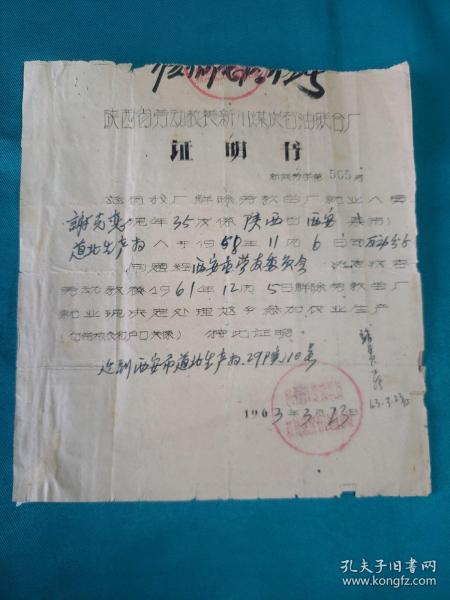 陕西省劳动教养新川煤炭石油联合厂
证明书
新厂劳字第565号
兹有我厂解除劳教留厂就业人员
谢克忠现年35岁系陕西省西安县(市)
道北生产队人于1958年11月6日因反动分子
问题经西安市党友委员会决定送去
劳动教养1961年12月5日解除劳教留厂
就业现决定处理返乡参加农业生产
(包括粮食和户口关系)特此证明
迁到西安市道北生产队.29号10号
1963年3月23日
63.3.23日
孔夫子旧书网
www.kongfz.com